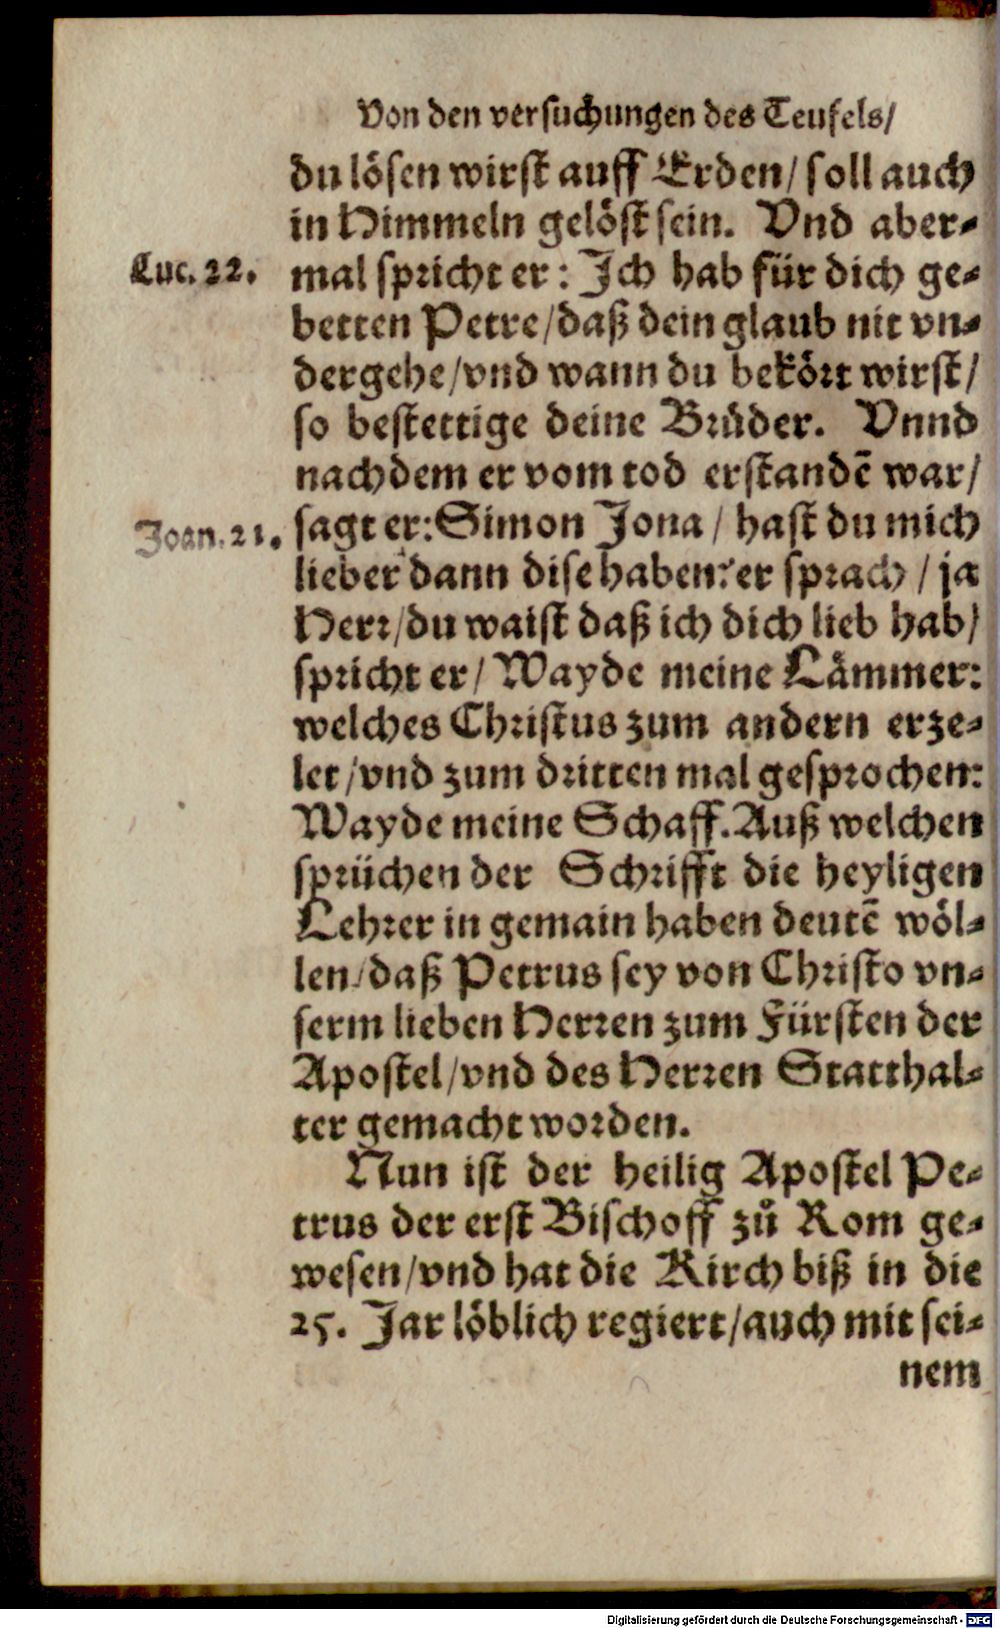 Von den versuchungen des Teufels/
du lösen wirst auff Erden/ soll auch
in Himmeln gelöst sein. Vnd aber-
Luc. 22.
mal spricht er: Ich hab für dich ge-
betten Petre/daß dein glaub nit vn-
dergehe/vnd wann du bekört wirst/
so bestettige deine Brüder. Vnnd
nachdem er vom tod erstandē war/
Joan. 21.
sagt er: Simon Jona/ hast du mich
lieber dann dise haben: er sprach/ ja
Herr/du waist daß ich dich lieb hab/
spricht er/ Wayde meine Lämmer:
welches Christus zum andern erze-
let/vnd zum dritten mal gesprochen:
Wayde meine Schaff. Auß welchen
sprüchen der Schrifft die heyligen
Lehrer in gemain haben deutē wöl-
len/daß Petrus sey von Christo vn-
serm lieben Herren zum Fürsten der
Apostel/vnd des Herren Statthal-
ter gemacht worden.
Nun ist der heilig Apostel Pe-
trus der erst Bischoff zů Rom ge-
wesen/vnd hat die Kirch biß in die
25. Jar löblich regiert/auch mit sei-
nem
Digitalisierung gefördert durch die Deutsche Forschungsgemeinschaft - DFG